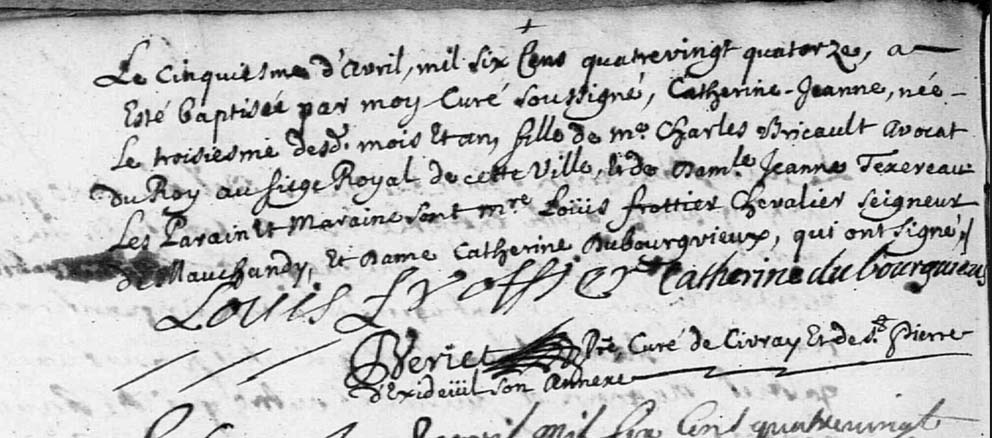 Le Cinquiesme d'Avril, mil six Cens quatrevingt quatorze, a
Esté baptisée par moy Curé soussigné, Catherine-Jeanne, née
Le troisiesme desd. mois Et an, fille de me Charles Bricault Avocat
du Roy au siege Royal de cette Ville, Et de Damle Jeanne Texereau
Les Parain Et Maraine sont mre Loüis frottier Chevalier seigneur
de Mauchandy, Et Dame Catherine Dubourgvieux, qui ont signé
Louis Frottier Catherine du bourguieus
Veriet Ptre, Curé de Civray Et de St Pierre
d'Exideüil son Annexe
mil six Cent quatrevingt